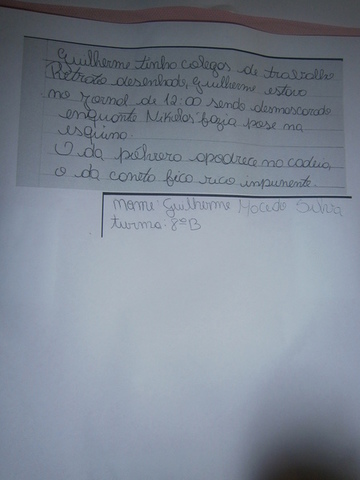 Guilherme tinho colegos de trabalho
Retrato desenhado, Guilherme estavo
no jornal de 12:00 sendo desmascarado
enquonte Nikolos fazia pose na
esquino.
O da pólvero apodrece no cadeia,
o da caneto fico rico impunente.
Nome: Guilherme Macedo Silva
turma: 8ºB